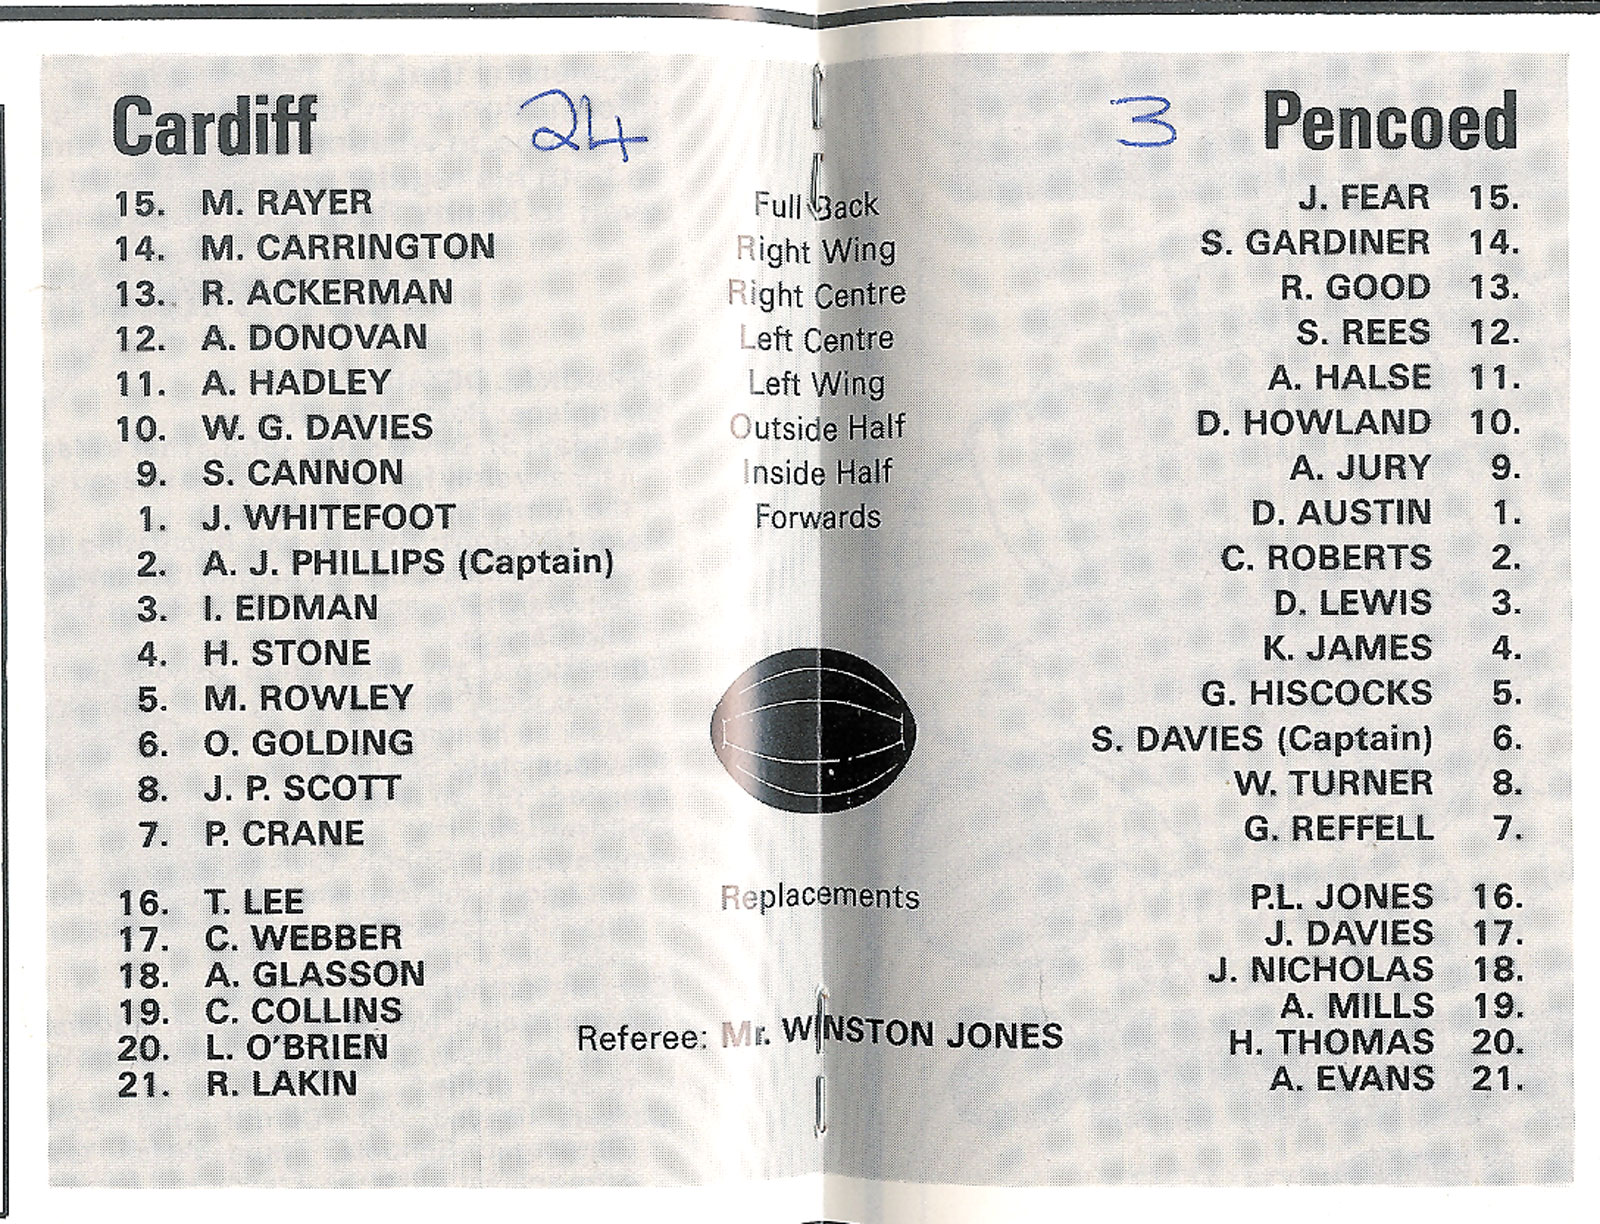 Cardiff 24 3 Pencoed
15. M. RAYER Full Back J. FEAR 15.
14. M. CARRINGTON Right Wing S. GARDINER 14.
13. R. ACKERMAN Right Centre R. GOOD 13.
12. A. DONOVAN Left Centre S. REES 12.
11. A. HADLEY Left Wing A. HALSE 11.
10. W. G. DAVIES Outside Half D. HOWLAND 10.
9. S. CANNON Inside Half A. JURY 9.
1. J. WHITEFOOT Forwards D. AUSTIN 1.
2. A. J. PHILLIPS (Captain) C. ROBERTS 2.
3. I. EIDMAN D. LEWIS 3.
4. H. STONE K. JAMES 4.
5. M. ROWLEY G. HISCOCKS 5.
6. O. GOLDING S. DAVIES (Captain) 6.
8. J. P. SCOTT W. TURNER 8.
7. P. CRANE G. REFFELL 7.
16. T. LEE Replacements P.L. JONES 16.
17. C. WEBBER J. DAVIES 17.
18. A. GLASSON J. NICHOLAS 18.
19. C. COLLINS A. MILLS 19.
20. L. O'BRIEN Referee: Mr. WINSTON JONES H. THOMAS 20.
21. R. LAKIN A. EVANS 21.